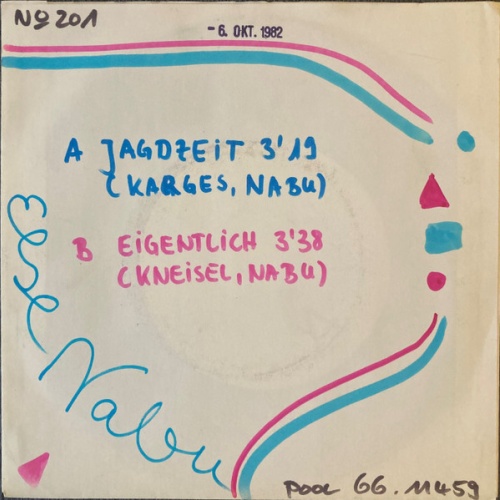 No 201
- 6. OKT. 1982
A JAGDZEIT 3'19
(KARGES, NABU)
B EIGENTLICH 3'38
(KNEISEL, NABU)
Nabu
POOL 66.11459